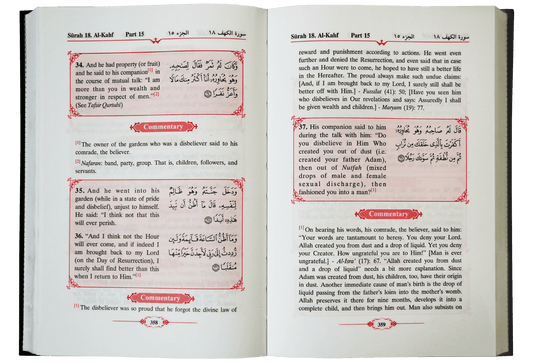 Sûrah 18. Al-Kahf Part 15 الجزء ١٥ سورة الكهف ١٨
34. And he had property (or fruit)
and he said to his companion[1] in
the course of mutual talk: "I am
more than you in wealth and
stronger in respect of men."[2]
(See Tafsir Qurtubi)
وَكَانَ لَهُ ثَمَرٌ فَقَالَ لِصَاحِبِهِ
وَهُوَ يُحَاوِرُهُ أَنَا أَكْثَرُ مِنكَ مَالًا
وَأَعَزُّ نَفَرًا
Commentary
[1] The owner of the gardens who was a disbeliever said to his
comrade, the believer.
[2] Nafaran: band, party, group. That is, children, followers, and
servants.
35. And he went into his
garden (while in a state of pride
and disbelief), unjust to himself.
He said: "I think not that this
will ever perish.
وَدَخَلَ جَنَّتَهُ وَهُوَ ظَالِمٌ
لِّنَفْسِهِ قَالَ مَا أَظُنُّ أَن تَبِيدَ
هَٰذِهِ أَبَدًا
36. "And I think not the Hour
will ever come, and if indeed I
am brought back to my Lord
(on the Day of Resurrection), I
surely shall find better than this
when I return to Him."[1]
وَمَا أَظُنُّ السَّاعَةَ قَائِمَةً وَلَئِن
رُّدِدتُّ إِلَىٰ رَبِّي لَأَجِدَنَّ خَيْرًا مِّنْهَا
مُنقَلَبًا
Commentary
[1] The disbeliever was so proud that he forgot the divine law of
358
Sûrah 18. Al-Kahf Part 15 الجزء ١٥ سورة الكهف ١٨
reward and punishment according to actions. He went even
further and denied the Resurrection, and even said that in case
such an Hour were to come, he hoped to have still a better life
in the Hereafter. The proud always make such undue claims:
[And, if I am brought back to my Lord, I surely will shall be
better off with Him.] - Fussilat (41): 50; [Have you seen him
who disbelieves in Our revelations and says: Assuredly I shall
be given wealth and children.] - Maryam (19): 77.
37. His companion said to him
during the talk with him: "Do
you disbelieve in Him Who
created you out of dust (i.e.
created your father Adam),
then out of Nutfah (mixed
drops of male and female
sexual discharge), then
fashioned you into a man?[1]
قَالَ لَهُ صَاحِبُهُ وَهُوَ يُحَاوِرُهُ
أَكَفَرْتَ بِالَّذِي خَلَقَكَ مِن تُرَابٍ
ثُمَّ مِن نُّطْفَةٍ ثُمَّ سَوَّاكَ رَجُلًا
Commentary
[1] On hearing his words, his comrade, the believer, said to him:
"Your words are tantamount to heresy. You deny your Lord.
Allah created you from dust and a drop of liquid. Yet you deny
your Creator. How ungrateful you are to Him!" [Man is ever
ungrateful.] - Al-Isra' (17): 67. "Allah created you from dust
and a drop of liquid" needs a bit more explanation. Since
Adam was created from dust, his children, too, have their origin
in dust. Another immediate cause of man's birth is the drop of
liquid passing from the father's loins into the mother's womb.
Allah preserves it there for nine months, develops it into a
complete child, and then brings him out. Man also subsists on
359